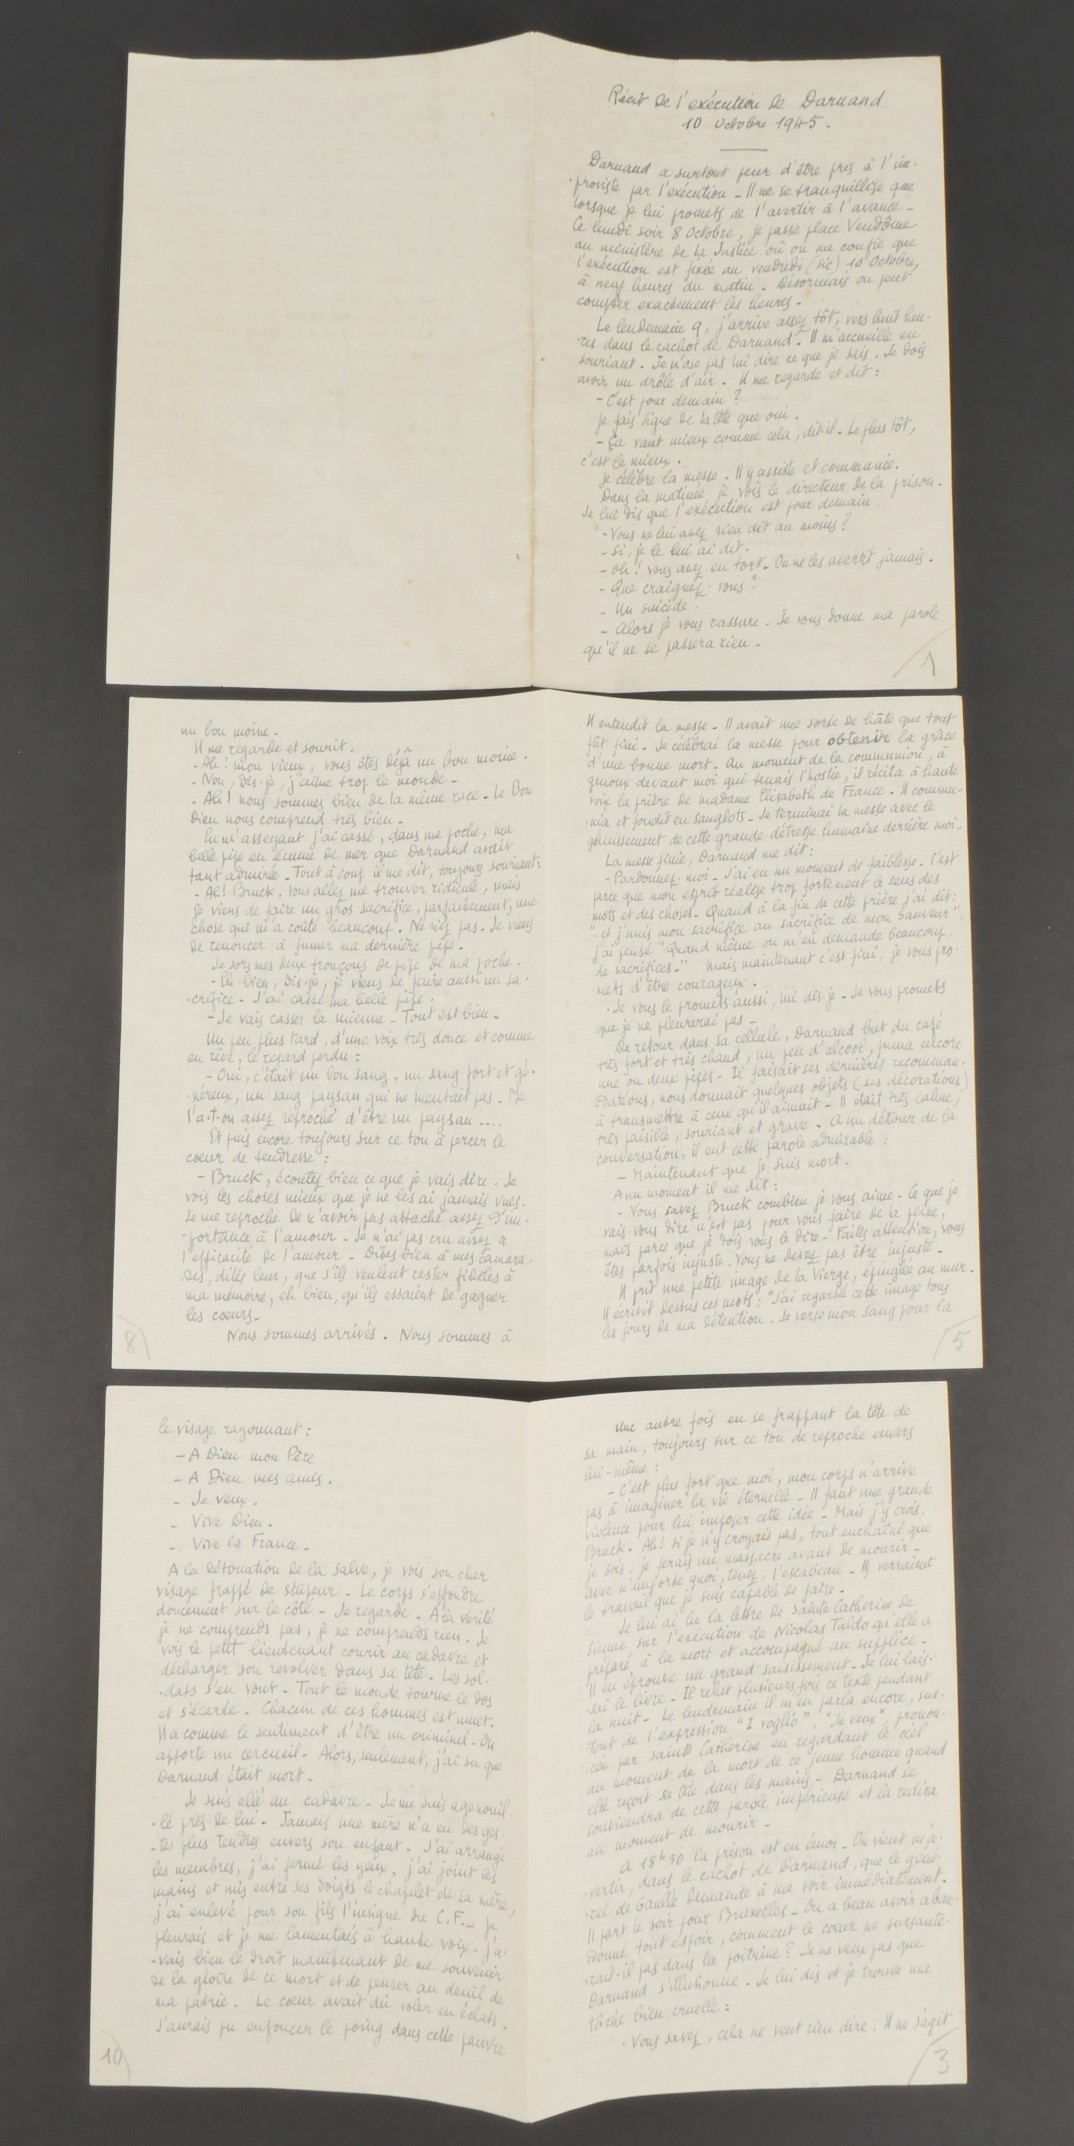 Récit de l'exécution de Darnand
10 Octobre 1945.
Darnand a surtout peur d'être pris à l'im-
proviste par l'exécution - Il ne se tranquillise que
lorsque je lui promets de l'avertir à l'avance -
Ce lundi soir 8 Octobre, je passe place Vendôme
au ministère de la Justice où on me confie que
l'exécution est fixée au vendredi (sic) 10 Octobre,
à neuf heures du matin - Désormais on peut
compter exactement les heures -
Le lendemain 9, j'arrive assez tôt, vers huit heu-
-res dans le cachot de Darnand - Il m'accueille en
souriant. Je n'ose pas lui dire ce que je sais. Je dois
avoir un drôle d'air. Il me regarde et dit :
- C'est pour demain ?
je fais signe de la tête que oui.
- Ça vaut mieux comme cela, dit-il - Le plus tôt,
c'est le mieux.
Je célèbre la messe. Il y assiste et communie.
Dans la matinée je vois le directeur de la prison.
Je lui dis que l'exécution est pour demain.
- Vous ne lui avez rien dit au moins ?
- Si, je le lui ai dit.
- Oh ! vous avez eu tort - On ne les avertit jamais.
- Que craignez-vous ?
- Un suicide.
- Alors je vous rassure - Je vous donne ma parole
qu'il ne se passera rien -
1
un bon moine.
Il me regarde et sourit.
- Ah ! mon vieux, vous êtes déjà un bon moine.
- Non, dis-je, j'aime trop le monde -
- Ah ! nous sommes bien de la même race - Le Bon
Dieu nous comprend très bien -
En m'asseyant j'ai cassé, dans ma poche, ma
belle pipe en écume de mer que Darnand avait
tant admirée - Tout à coup il me dit, toujours souriant :
- Ah ! Bruck, vous allez me trouver ridicule, mais
je viens de faire un gros sacrifice, parfaitement, une
chose qui m'a coûté beaucoup. Ne riez pas - Je viens
de renoncer à fumer ma dernière pipe -
Je sors mes deux tronçons de pipe de ma poche -
- Eh bien, dis-je, je viens de faire aussi un sa-
-crifice - J'ai cassé ma belle pipe.
- Je vais casser la mienne - Tout est bien -
Un peu plus tard, d'une voix très douce et comme
en rêve, le regard perdu :
- Oui, c'était un bon sang, un sang fort et gé-
-néreux, un sang paysan qui ne mentait pas - Me
l'a-t-on assez reproché d'être un paysan ....
Et puis encore toujours sur ce ton à percer le
coeur de tendresse :
- Bruck, écoutez bien ce que je vais dire - Je
vois les choses mieux que je ne les ai jamais vues -
Je me reproche de n'avoir pas attaché assez d'im-
-portance à l'amour - Je n'ai pas cru assez à
l'efficacité de l'amour - Dites bien à mes camara-
des, dites leur, que s'ils veulent rester fidèles à
ma mémoire, eh bien, qu'ils essaient de gagner
les coeurs -
Nous sommes arrivés. Nous sommes à
8
Il entendit la messe - Il avait une sorte de hâte que tout
fût fini - Je célébrai la messe pour obtenir la grâce
d'une bonne mort. Au moment de la communion, à
genoux devant moi qui tenais l'hostie, il récita à haute
voix la prière de madame Elisabeth de France - Il commu-
-nia et fondit en sanglots - Je terminai la messe avec le
gémissement de cette grande détresse humaine derrière moi -
La messe finie, Darnand me dit :
- Pardonnez-moi - J'ai eu un moment de faiblesse - C'est
parce que mon esprit réalise trop fortement le sens des
mots et des choses - Quand à la fin de cette prière j'ai dit :
" et j'unis mon sacrifice au sacrifice de mon Sauveur",
j'ai pensé "Quand même on m'en demande beaucoup
de sacrifices -" Mais maintenant c'est fini, je vous pro-
-mets d'être courageux -
- Je vous le promets aussi, lui dis-je - Je vous promets
que je ne pleurerai pas -
De retour dans sa cellule, Darnand but du café
très fort et très chaud, un peu d'alcool, fuma encore
une ou deux pipes - Il faisait ses dernières recomman-
dations, nous donnait quelques objets (ses décorations)
à transmettre à ceux qu'il aimait - Il était très calme,
très paisible, souriant et grave - A un détour de la
conversation, il eut cette parole admirable :
- Maintenant que je suis mort -
A un moment il me dit :
- Vous savez Bruck combien je vous aime - Ce que je
vais vous dire n'est pas pour vous faire de la peine,
mais parce que je dois vous le dire - Faites attention, vous
êtes parfois injuste - Vous ne devez pas être injuste -
Il prit une petite image de la Vierge, épinglée au mur.
Il écrivit dessus ces mots : "J'ai regardé cette image tous
les jours de ma détention - Je verse mon sang pour la
5
le visage rayonnant :
- A Dieu mon Père
- A Dieu mes amis.
- Je veux.
- Vive Dieu.
- Vive la France -
A la détonation de la salve, je vois son cher
visage frappé de stupeur - Le corps s'effondre
doucement sur le côté - Je regarde - A la vérité
je ne comprends pas, je ne comprends rien - Je
vois le petit lieutenant courir au cadavre et
décharger son revolver dans sa tête - Les sol-
-dats s'en vont - Tout le monde tourne le dos
et s'écarte - Chacun de ces hommes est muet.
Il a comme le sentiment d'être un criminel - On
apporte un cercueil - Alors, seulement, j'ai su que
Darnand était mort.
Je suis allé au cadavre - Je me suis agenouil-
-lé près de lui - Jamais une mère n'a eu des ges-
-tes plus tendres envers son enfant - J'ai arrangé
les membres, j'ai fermé les yeux, j'ai joint les
mains et mis entre ses doigts le chapelet de sa mère,
j'ai enlevé pour son fils l'insigne du C.F. - Je
pleurais et je me lamentais à haute voix - J'a-
-vais bien le droit maintenant de me souvenir
de la gloire de ce mort et de penser au deuil de
ma patrie - Le coeur avait dû voler en éclats -
J'aurais pu enfoncer le poing dans cette pauvre
10
Une autre fois en se frappant la tête de
sa main, toujours sur ce ton de reproche envers
lui-même :
- C'est plus fort que moi, mon corps n'arrive
pas à imaginer la vie éternelle - Il faut une grande
violence pour lui imposer cette idée - Mais j'y crois,
Bruck - Ah ! si je n'y croyais pas, tout enchaîné que
je sois, je ferais un massacre avant de mourir -
avec n'importe quoi, tenez, l'escabeau - Ils verraient
le travail que je suis capable de faire -
Je lui ai lu la lettre de Sainte Catherine de
Sienne sur l'exécution de Nicolas Tuldo qu'elle a
préparé à la mort et accompagné au supplice -
Il en éprouve un grand saisissement - Je lui lais-
-sai le livre - Il relut plusieurs fois ce texte pendant
la nuit - Le lendemain il m'en parla encore, sur-
tout de l'expression "I voglio", "Je veux" pronon-
-cée par Sainte Catherine en regardant le ciel
au moment de la mort de ce jeune homme quand
elle reçoit sa tête dans les mains - Darnand se
souviendra de cette parole impérieuse et la redira
au moment de mourir -
A 18h30 la prison est en émoi - On vient m'a-
-vertir, dans le cachot de Darnand, que le géné-
-ral de Gaulle demande à me voir immédiatement -
Il part le soir pour Bruxelles - On a beau avoir aban-
donné tout espoir, comment le coeur ne sursaute-
-rait-il pas dans la poitrine ? Je ne veux pas que
Darnand s'illusionne - Je lui dis et je trouve ma
tâche bien cruelle :
- Vous savez, cela ne veut rien dire. Il ne s'agit
3